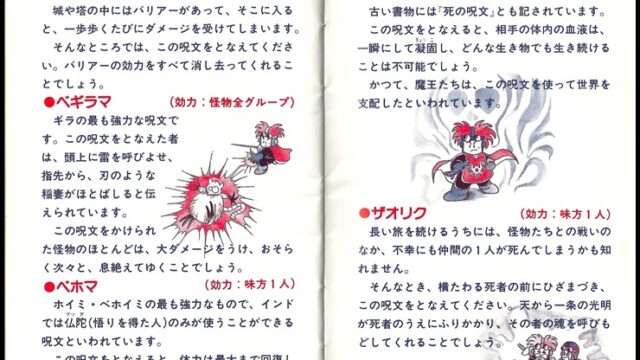 城や塔の中にはバリアーがあって、そこに入る
と、一歩歩くたびにダメージを受けてしまいます。
そんなところでは、この呪文をとなえてくださ
い。バリアーの効力をすべて消し去ってくれるこ
とでしょう。
●ベギラマ (効力：怪物全グループ)
ギラの最も強力な呪文で
す。この呪文をとなえた者
は、頭上に雷を呼びよせ、
指先から、刃のような
稲妻がほとばしると伝
えられています。
この呪文をかけられ
た怪物のほとんどは、大ダメージをうけ、おそら
く次々と、息絶えてゆくことでしょう。
●ベホマ (効力：味方1人)
ホイミ・ベホイミの最も強力なもので、インド
では仏陀(悟りを得た人)のみが使うことができる
呪文といわれています。
この呪文をとなえると、体力は最大まで回復し
古い書物には「死の呪文」とも記されています。
この呪文をとなえると、相手の体内の血液は、
一瞬にして凝固し、どんな生き物でも生き続ける
ことは不可能でしょう。
かつて、魔王たちは、この呪文を使って世界を
支配したといわれています。
●ザオリク (効力：味方1人)
長い旅を続けるうちには、怪物たちとの戦いの
なか、不幸にも仲間の1人が死んでしまうかも知
れません。
そんなとき、横たわる死者の前にひざまづき、
この呪文をとなえてください。天から一条の光明
が死者のうえにふりかかり、その者の魂を呼びも
どしてくれることでしょう。